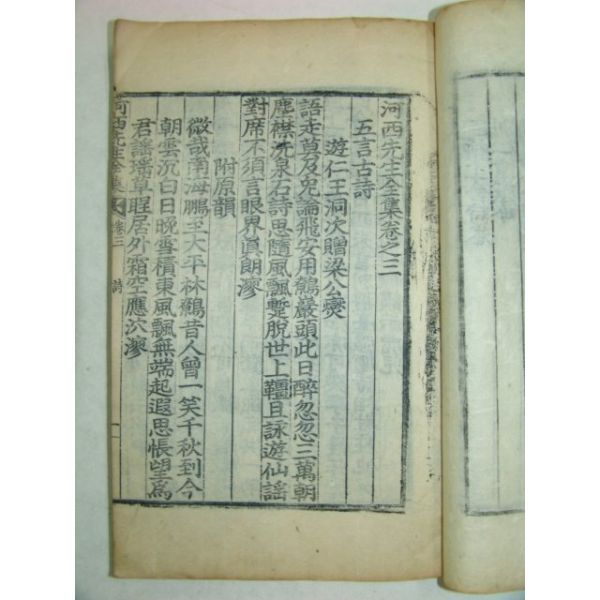 河西先生全集卷之三
五言古詩
遊仁王洞次贈梁公燮
語走莫及兎論飛安用鷃巖頭此日醉忽忽三萬朝
塵襟洗泉石詩思隨風飄蹔脫世上韁且詠遊仙謠
對席不須言眼界眞朗寥
附原韻
微哉南海鵬至大平林鷃昔人曾一笑千秋到今
朝雲沉白日晚雪積東風飄無端起遐思悵望爲
君謠瑤草 居外霜空應泬寥
河西先生全集 卷三 詩 一